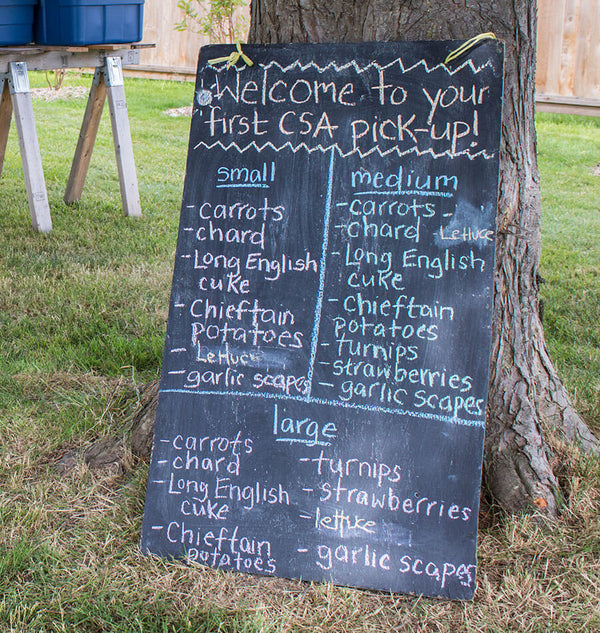 Welcome to your
first CSA pick-up!
small
- carrots
- chard
- Long English
cuke
- Chieftain
potatoes
- Lettuce
- garlic scapes
medium
- carrots -
- chard - Lettuce
- Long English
cuke
- Chieftain
potatoes
- turnips
- strawberries
- garlic scapes
large
- carrots
- chard
- Long English
cuke
- Chieftain
potatoes
- turnips
- strawberries
- lettuce
- garlic scapes